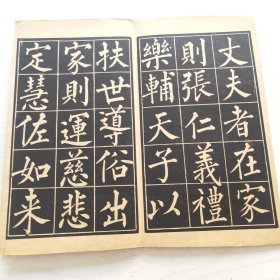 丈夫者在家
則張仁義禮
樂輔天子以
扶世導俗出
家則運慈悲
定慧佐如来